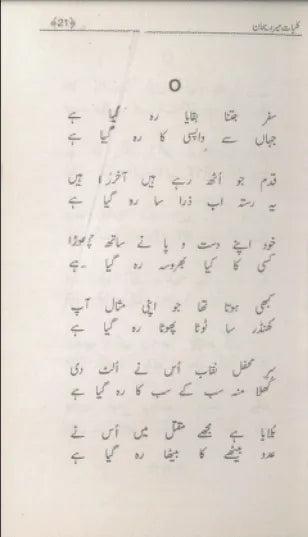 ﴿21﴾ کلیات میر
O
سفر جتنا بقایا رہ گیا ہے
جہاں سے واپسی کا رہ گیا ہے
قدم جو اُٹھ رہے ہیں آخری ہیں
یہ رستہ اب ذرا سا رہ گیا ہے
خود اپنے دست و پا نے ساتھ چھوڑا
کسی کا کیا بھروسہ رہ گیا ہے
کبھی ہوتا تھا جو اپنی مثال آپ
کھنڈر سا ٹوٹا پھوٹا رہ گیا ہے
سرِ محفل نقاب اُس نے اُلٹ دی
کُھلا منہ سب کے سب کا رہ گیا ہے
بُلایا ہے مجھے مقتل میں اُس نے
عدو بیٹھے کا بیٹھا رہ گیا ہے